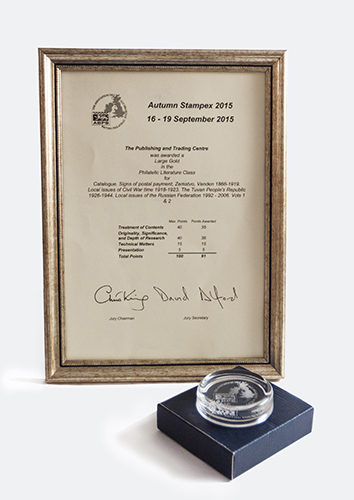 Autumn Stampex 2015
16 - 19 September 2015
The Publishing and Trading Centre
was awarded a
Large Gold
in the
Philatelic Literature Class
for
Catalogue. Signs of postal payment, Zemstvo, Venden 1866-1919.
Local issues of Civil War time 1918-1923. The Tuvan People's Republic
1926-1944. Local issues of the Russian Federation 1992 - 2006. Vols 1
& 2
Max. Points Points Awarded
Treatment of Contents 40
Originality, Significance,
and Depth of Research 40
Technical Matters 15
Presentation 5 5
Total Points 100 91
David Alford
Jury Chairman Jury Secretary